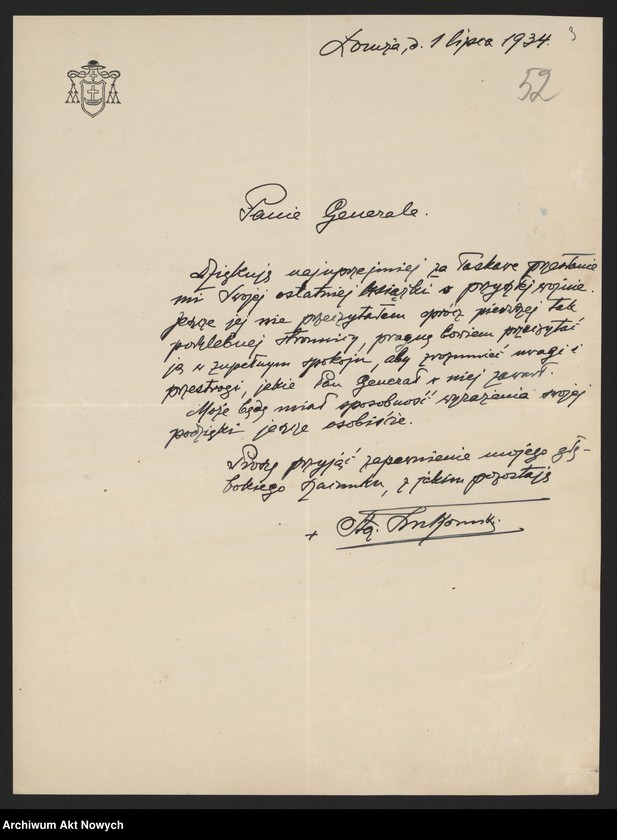 Łomża, d. 1 lipca 1934.
3
52
Panie Generale.
Dziękuję najuprzejmiej za łaskawe przesłanie
mi Swojej ostatniej książki o przyszłej wojnie.
Jeszcze jej nie przeczytałem oprócz pierwszej tak
pochlebnej stronnicy, pragnę bowiem przeczytać
ją w zupełnym spokoju, aby zrozumieć uwagi i
przestrogi, jakie Pan Generał w niej zawarł.
Może będę miał sposobność wyrażenia swojej
podzięki jeszcze osobiście.
Proszę przyjąć zapewnienie mojego głę-
bokiego szacunku, z jakim pozostaję
+ St. Łukomski.
Archiwum Akt Nowych